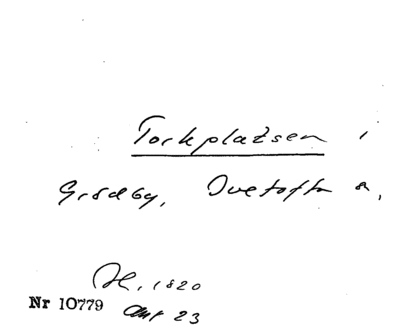 Torkplatsen i
Grödby, Ovetofta a,
H. 1820
Nr 10779
Ant 23